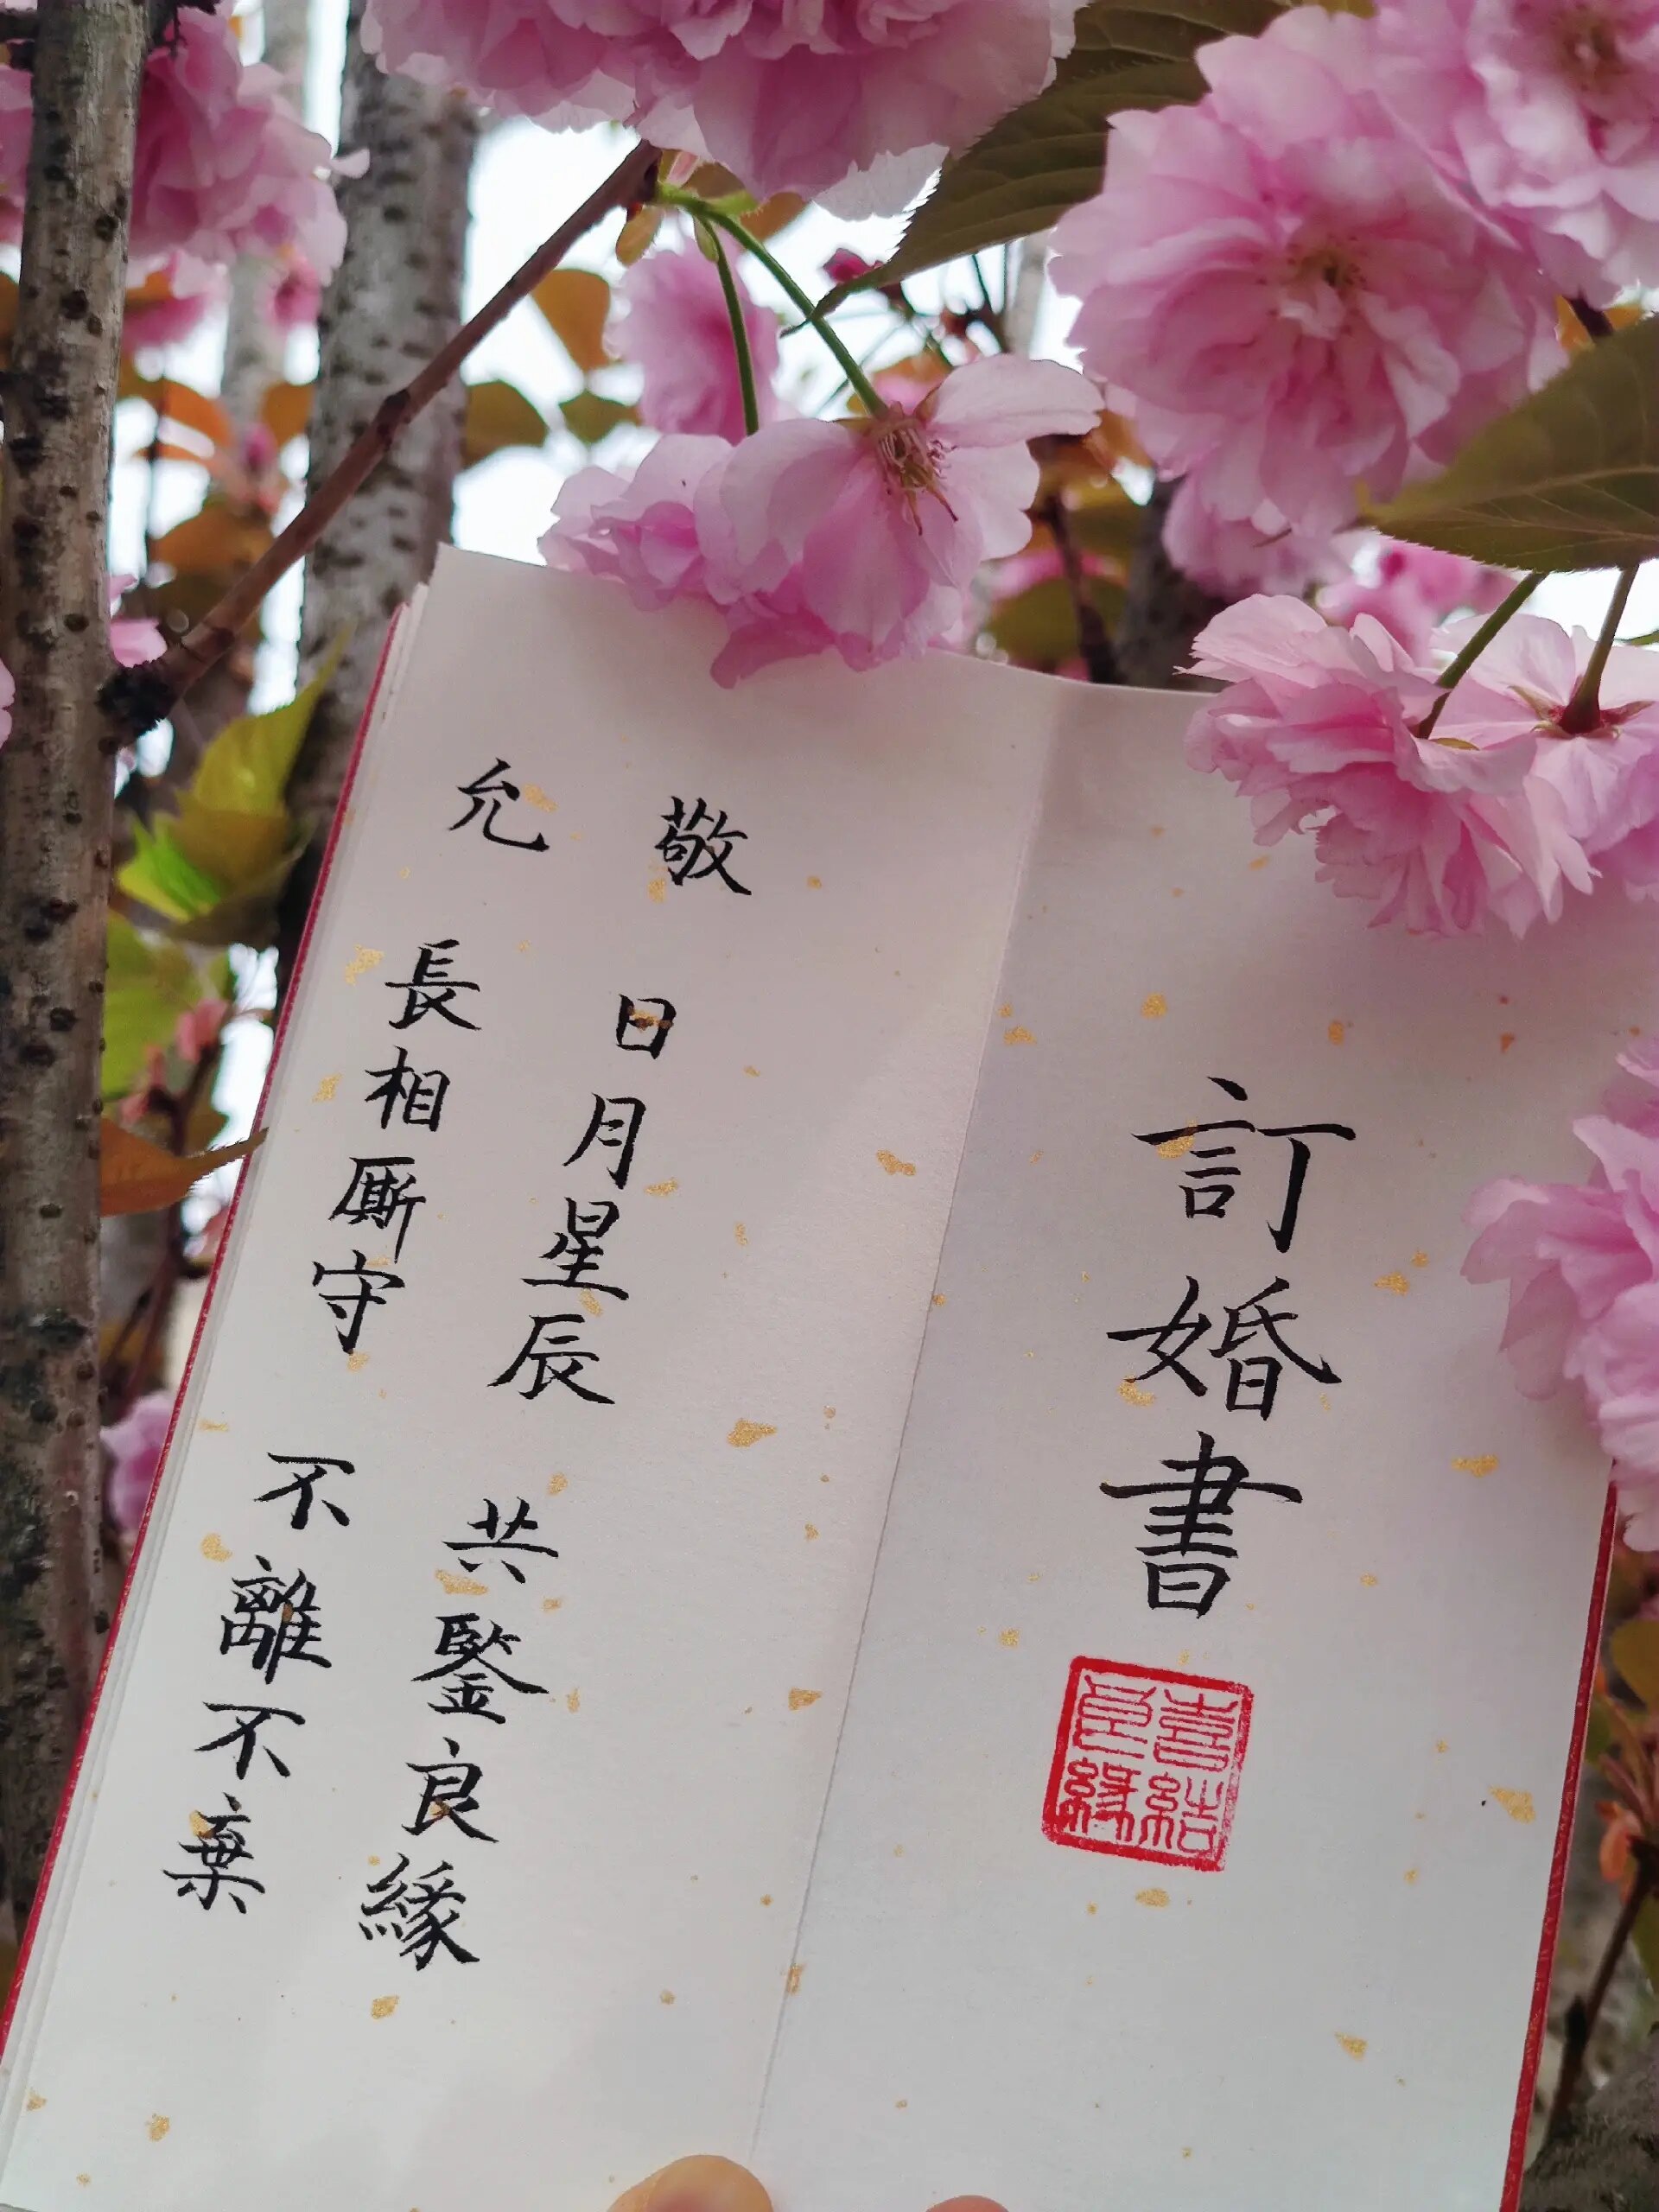 訂婚書
喜結良緣
敬 日月星辰 共鑒良緣
允 長相厮守 不離不棄